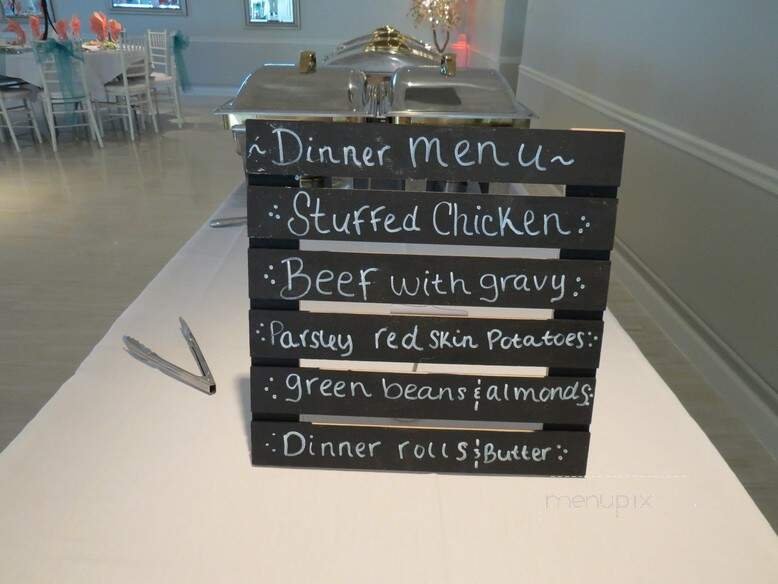 ~Dinner menu~
Stuffed Chicken
Beef with gravy
Parsley red skin Potatoes
green beans & almonds
Dinner rolls & Butter
menupix